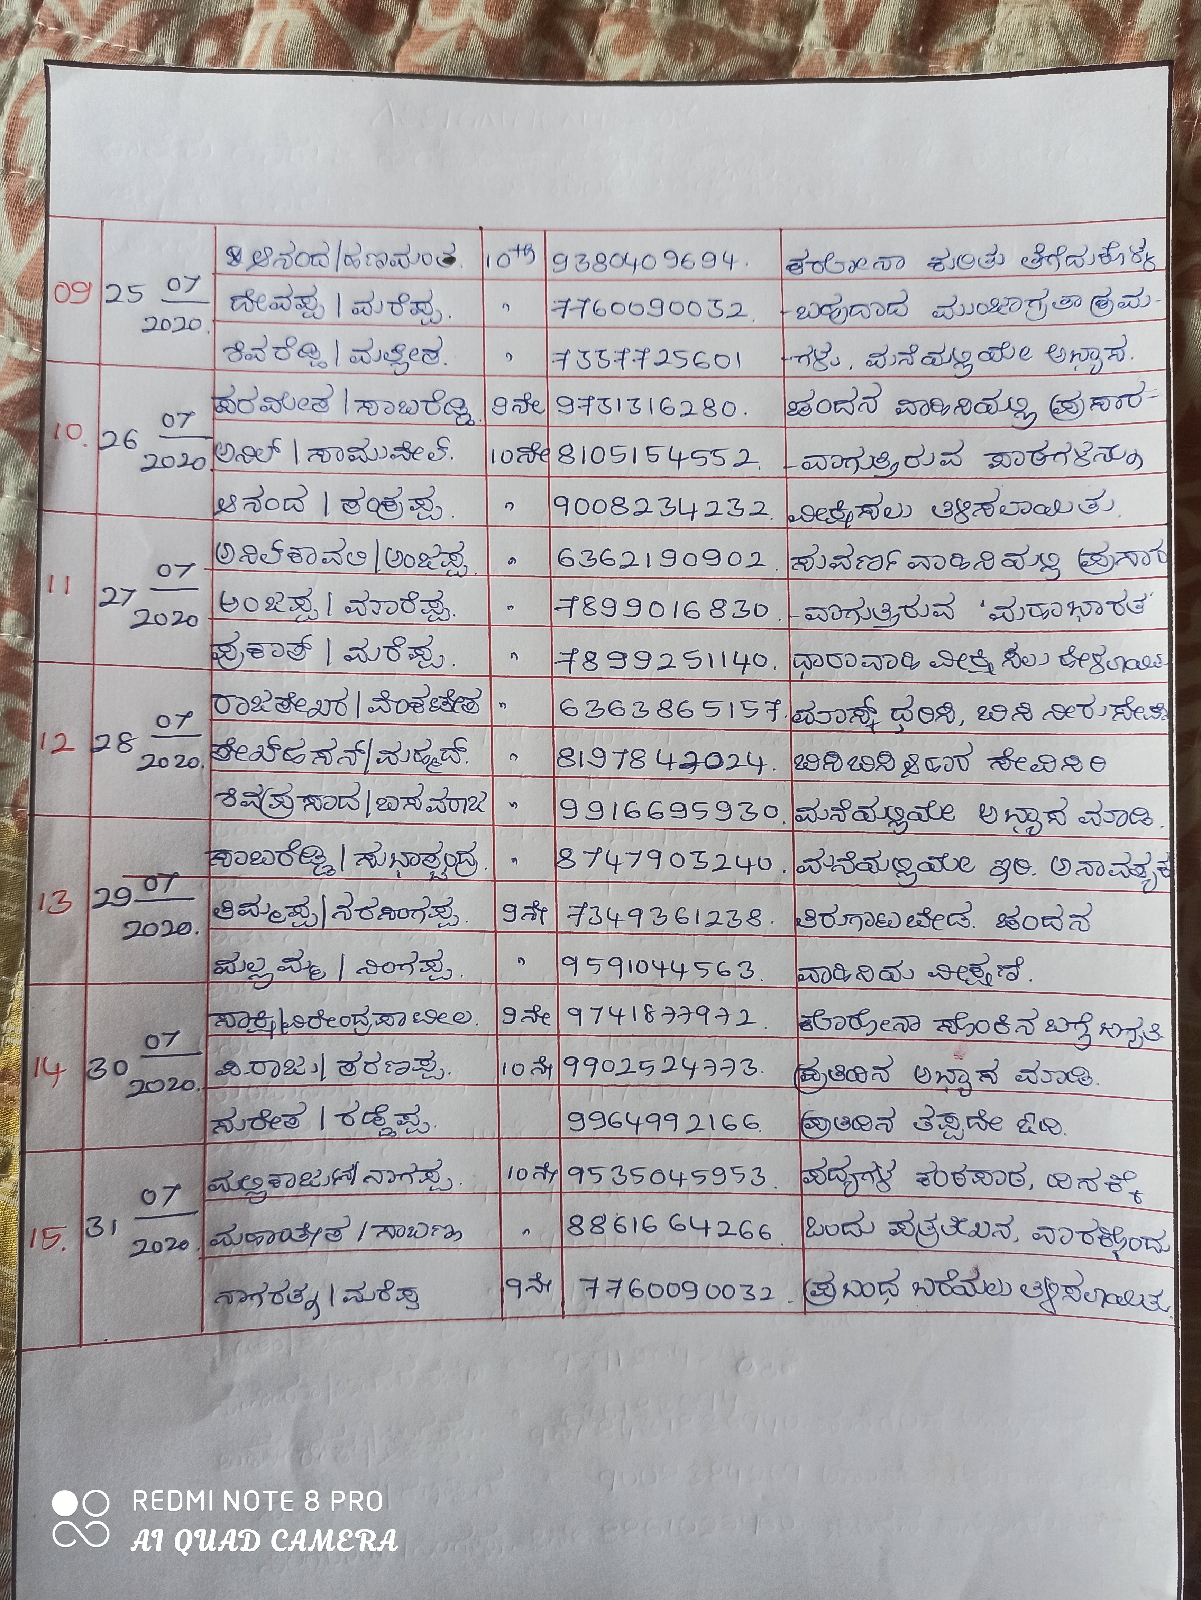 09 25 07/2020. ಆನಂದ/ಹಣಮಂತ. 10th 9380409694. ಕರೋನಾ ಕುರಿತು ತೆಗೆದುಕೊಳ್ಳ
ದೇವಪ್ಪ | ಮರೆಪ್ಪ. " 7760090032. -ಬಹುದಾದ ಮುಂಜಾಗ್ರತಾ ಕ್ರಮ-
ಶಿವರೆಡ್ಡಿ | ಮಲ್ಲೇಶ. " 7337725601 -ಗಳು, ಮನೆಯಲ್ಲಿಯೇ ಅಭ್ಯಾಸ.
10. 26 07/2020 ಪರಮೇಶ | ಸಾಬರೆಡ್ಡಿ 9ನೇ 9731316280. ಚಂದನ ವಾಹಿನಿಯಲ್ಲಿ ಪ್ರಸಾರ-
ಅನಿಲ್ | ಸಾಮುವೇಲ್. 10ನೇ 8105154552. -ವಾಗುತ್ತಿರುವ ಪಾಠಗಳನ್ನು
ಆನಂದ | ಶಂಕ್ರಪ್ಪ. " 9008234232. ವೀಕ್ಷಿಸಲು ತಿಳಿಸಲಾಯಿತು.
11 27 07/2020 ಅನಿಲ್‌ಕಾವಲಿ/ಅಂಜಪ್ಪ " 6362190902. ಸುವರ್ಣ ವಾಹಿನಿಯಲ್ಲಿ ಪ್ರಸಾರ
ಅಂಜಪ್ಪ | ಮಾರೆಪ್ಪ. " 7899016830. -ವಾಗುತ್ತಿರುವ 'ಮಹಾಭಾರತ'
ಪ್ರಕಾಶ್ | ಮರೆಪ್ಪ. " 7899251140. ಧಾರಾವಾಹಿ ವೀಕ್ಷಿಸಲು ಹೇಳಲಾಯಿತು
12 28 07/2020. ರಾಜಶೇಖರ | ವೆಂಕಟೇಶ " 6363865157. ಮಾಸ್ಕ್ ಧರಿಸಿ, ಬಿಸಿ ನೀರು ಸೇವಿಸಿ
ಶೇಖ್‌ಹಸನ್/ಮಹ್ಮದ್. " 8197842024. ಬಿಸಿಬಿಸಿ ಆಹಾರ ಸೇವಿಸಿರಿ
ಶಿವಪ್ರಸಾದ | ಬಸವರಾಜ " 9916695930. ಮನೆಯಲ್ಲಿಯೇ ಅಭ್ಯಾಸ ಮಾಡಿ.
13 29 07/2020. ಸಾಬರೆಡ್ಡಿ | ಸುಭಾಶ್ಚಂದ್ರ. " 8747903240. ಮನೆಯಲ್ಲಿಯೇ ಇರಿ. ಅನಾವಶ್ಯಕ
ತಿಮ್ಮಪ್ಪ | ನರಸಿಂಗಪ್ಪ. 9ನೇ 7349361238. ತಿರುಗಾಟ ಬೇಡ. ಚಂದನ
ಮಲ್ಲಮ್ಮ | ನಿಂಗಪ್ಪ. " 9591044563. ವಾಹಿನಿಯ ವೀಕ್ಷಣೆ.
14 30 07/2020. ಸಾಕ್ಷಿ/ವೀರೇಂದ್ರಪಾಟೀಲ. 9ನೇ 9741877972. ಕೊರೋನಾ ಸೊಂಕಿನ ಬಗ್ಗೆ ಜಾಗೃತಿ
ವಿ.ರಾಜು | ಶರಣಪ್ಪ. 10ನೇ 9902524773. ಪ್ರತಿದಿನ ಅಭ್ಯಾಸ ಮಾಡಿ.
ಸುರೇಶ | ಕಡ್ಡೆಪ್ಪ. 9964992166. ಪ್ರತಿದಿನ ತಪ್ಪದೇ ಓದಿ.
15. 31 07/2020. ಮಲ್ಲಿಕಾರ್ಜುನ/ನಾಗಪ್ಪ. 10ನೇ 9535045953. ಪದ್ಯಗಳ ಕಂಠಪಾಠ, ದಿನಕ್ಕೆ
ಮಹಾಂತೇಶ / ಸಾಬಣ್ಣ " 8861664266. ಒಂದು ಪತ್ರಲೇಖನ, ವಾರಕ್ಕೊಂದು
ನಾಗರತ್ನ | ಮರೆಪ್ಪ 9ನೇ 7760090032. ಪ್ರಬಂಧ ಬರೆಯಲು ತಿಳಿಸಲಾಯಿತು.
REDMI NOTE 8 PRO
AI QUAD CAMERA